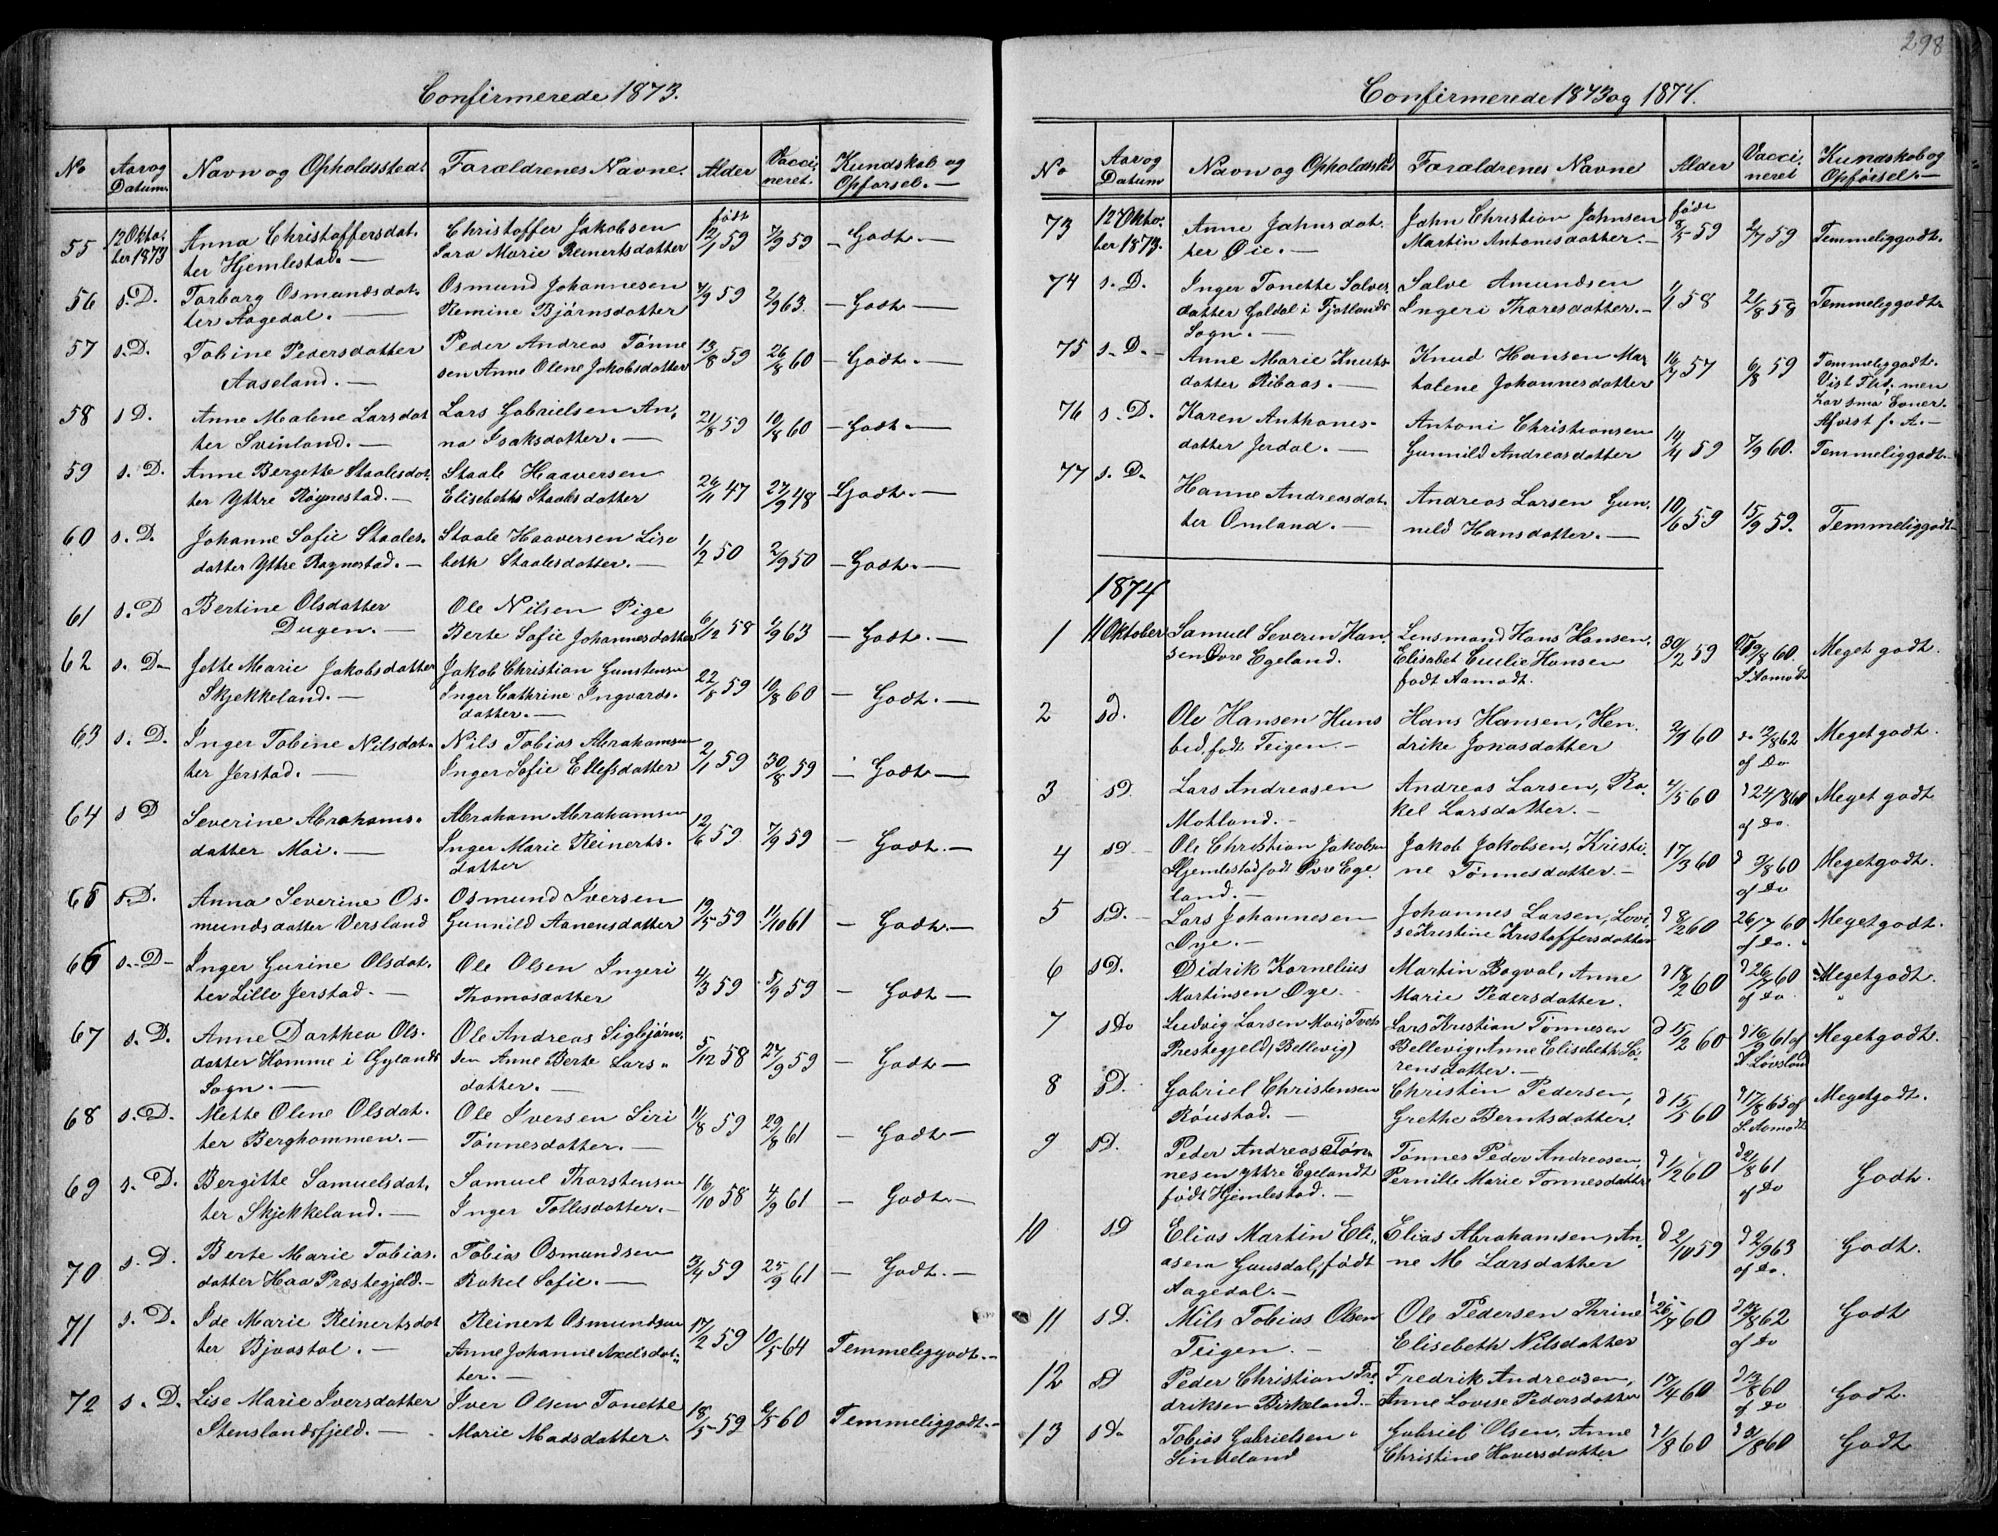 Confirmerede 1873.
No Aar og Datum. Navn og Opholdssted. Forældrenes Navne. Alder Vaccineret. Kundskab og Opførsel.
55 12 Oktober 1873 Anna Christoffersdat-
ter Hjemlestad. Christoffer Jakobsen
Sara Marie Reinertsdatter født 12/1 59 7/9 59 Godt.
56 s.D. Torborg Osmundsdat-
ter Aagedal. Osmund Johannesen
Remine Bjørnsdatter 4/9 59 2/9 63. Godt.
57 s.D. Tobine Pedersdatter
Aaseland. Peder Andreas Tønne
sen Anne Olene Jakobsdatter 13/8 59 26/8 60 Godt.
58 s D. Anne Malene Larsdat
ter Svinland. Lars Gabrielsen An,
na Isaksdatter. 21/8 59 10/8 60 Godt.
59 s. D. Anne Bergette Staalesdat-
ter Yttre Røgnestad. Staale Haaversen
Elisebeth Staalsdatter 26/11 47 27/9 48 Godt.
60 s. D. Johanne Sofie Staales-
datter Yttre Røgnestad. Staale Haaversen Lise
beth Staalesdatter. 1/2 50 2/9 50 Godt.
61 s. D Bertine Olsdatter
Dugen. Ole Nilsen Pige
Berte Sofie Johannesdatter 6/12 58 1/9 63 Godt.
62 s. D. Jette Marie Jakobsdatter
Skjekkeland. Jakob Christian Gunstensen
Inger Cathrine Ingvards-
datter. 22/8 59 10/8 60 Godt.
63 s. D. Inger Tobine Nilsdat-
ter Jerstad. Nils Tobias Abrahamsen
Inger Sofie Ellefsdatter 2/1 59 30/8 59 Godt
64 s D Severine Abrahams-
datter Moi. Abraham Abrahamsen
Inger Marie Reinerts-
datter 12/6 59 7/9 59 Godt.
65 s.D. Anna Severine Os-
mundsdatter Versland Osmund Iversen
Gunnild Aanensdatter 19/5 59 11/10 61 Godt.
66 s. D Inger Gurine Olsdat-
ter Lille Jerstad. Ole Olsen Ingeri
Thomasdatter 4/3 59 5/9 59 Godt
67 s. D. Anne Dorthea Ols-
datter Homme i Gylands
Sogn. Ole Andreas Sigbjørn,
sen Anne Berte Lars-
datter. 5/12 58 27/9 59 Godt
68 s. D. Mette Olene Olsdat-
ter Berghommen. Ole Iversen Siri
Tønnesdatter. 11/8 59 29/8 61 Godt
69 s. D. Bergitte Samuelsdat,
ter Skjekkeland. Samuel Thorstensen
Inger Tollisdatter. 16/10 58 4/9 61 Godt
70 s. D. Berte Marie Tobias-
datter Haa Præstegjeld. Tobias Osmundsen
Rakel Sofie. 3/4 59 25/9 61 Godt.
71 s. D. Ide Marie Reinertsdat
ter Bjvastøl. Reinert Osmundsen
Anne Johanne Axelsdat-
ter. 17/2 59 10/5 64 Temmeliggodt.
72 s. D. Lise Marie Iversdatter
Stenslandsfjeld. Iver Olsen Tonette
Marie Madsdatter. 18/5 59 6/5 60 Temmeliggodt.
298
Confirmerede 1873 og 1874.
No Aar og Datum Navn og Opholdsted Forældrenes Navne Alder Vaccineret Kundskab og Opførsel.
73 12 Oktober 1873. Anne Jahnsdat-
ter Øie. Jahn Christian Jahnsen
Martin Antonsdatter. født 3/5 59 2/7 59 Temmeliggodt.
74 s. D. Inger Tonette Salves
datter Galdal i Fjotlands
Sogn. Salve Amundsen
Ingeri Tharesdatter. 1/1 58 21/8 58 Temmeliggodt
75 s. D. Anne Marie Knuts-
datter Ribaas. Knud Hansen Mar
talene Johannesdatter 16/7 57 6/8 59 Temmeliggodt.
Vist Flid, men
har sma Evner.
Afvist f. A.
76 s. D. Karen Anthones-
datter Jerdal. Antoni Christiansen
Gunnild Andreasdatter 14/4 59 7/9 60. Temmeliggodt
77 s. D. Hanne Andreasdat-
ter Omland. Andreas Larsen Gun,
neld Hansdatter. 10/6 59 15/9 59. Temmeliggodt
1874
1 11 Oktober Samuel Severin Han,
sen Øvre Egeland. Lensmand Hans Hansen,
Elisabet Emilie Hansen
født Aamodt. 30/2 59 19/8 60
S. Aamodt Meget godt.
2 sd. Ole Hansen Huns
bed, født Teigen. Hans Hansen, Hen
drike Jonasdatter 2/9 60 2/8 62
af Do Meget godt.
3 s D. Lars Andreasen
Motland. Andreas Larsen, Ra,
kel Larsdatter. 4/5 60 24/8 60
af Do. Meget godt
4 s D Ole Christian Jakobsen
Hjemlestad født Øvr Ege
land. Jakob Jakobsen, Kristi-
ne Tønnesdatter. 17/3 60 3/8 60
af Do Meget godt.
5 s D. Lars Johannesen
Øye. Johannes Larsen, Lovi
se Kristine Kristoffersdatter 8/2 60 26/7 60
af Do. Meget godt.
6 s D. Didrik Kornelius
Martinsen Øye. Martin Bogval, Anne
Marie Pedersdatter. 18/2 60 26/7 60
af Do. Meget godt.
7 s Do Ludvig Larsen Moi, Tveds
Prestegjeld, (Bellevig) Lars Kristian Tønnesen
Bellevig, Anne Elisebeth Sø-
rensdatter. 15/2 60 16/9 61 af
S. Løvsland Meget godt.
8 s D. Gabriel Christensen
Røiestad. Christen Pedersen,
Grethe Berntsdatter. 15/5 60 17/8 65 af
S. Aamodt Meget godt.
9 s D. Peder Andreas Tøn-
nesen Yttre Egelandt
født Hjemlestad. Tønnes Peder Andreasen,
Pernille Marie Tønnesdatter 1/2 60 21/8 61
af Do Godt.
10 s D Elias Martin Eli-
asen Gausdal, født
Aagedal. Elias Abrahamsen, An-
ne M Larsdatter 2/10 59 2/9 63
af Do. Godt.
11 s D. Nils Tobias Olsen
Teigen. Ole Pedersen Thrine
Elisebeth Nilsdatter 26/7 60 12/8 62
af Do Godt
12 s D Peder Christian Fre
driksen Birkeland. Fredrik Andreasen,
Anne Lovise Pedersdatter 17/4 60 13/8 60
af Do Godt.
13 s Do Tobias Gabrielsen
Sindeland Gabriel Olsen, Anne
Christine Haversdatter 1/8 60 31/8 60 Godt